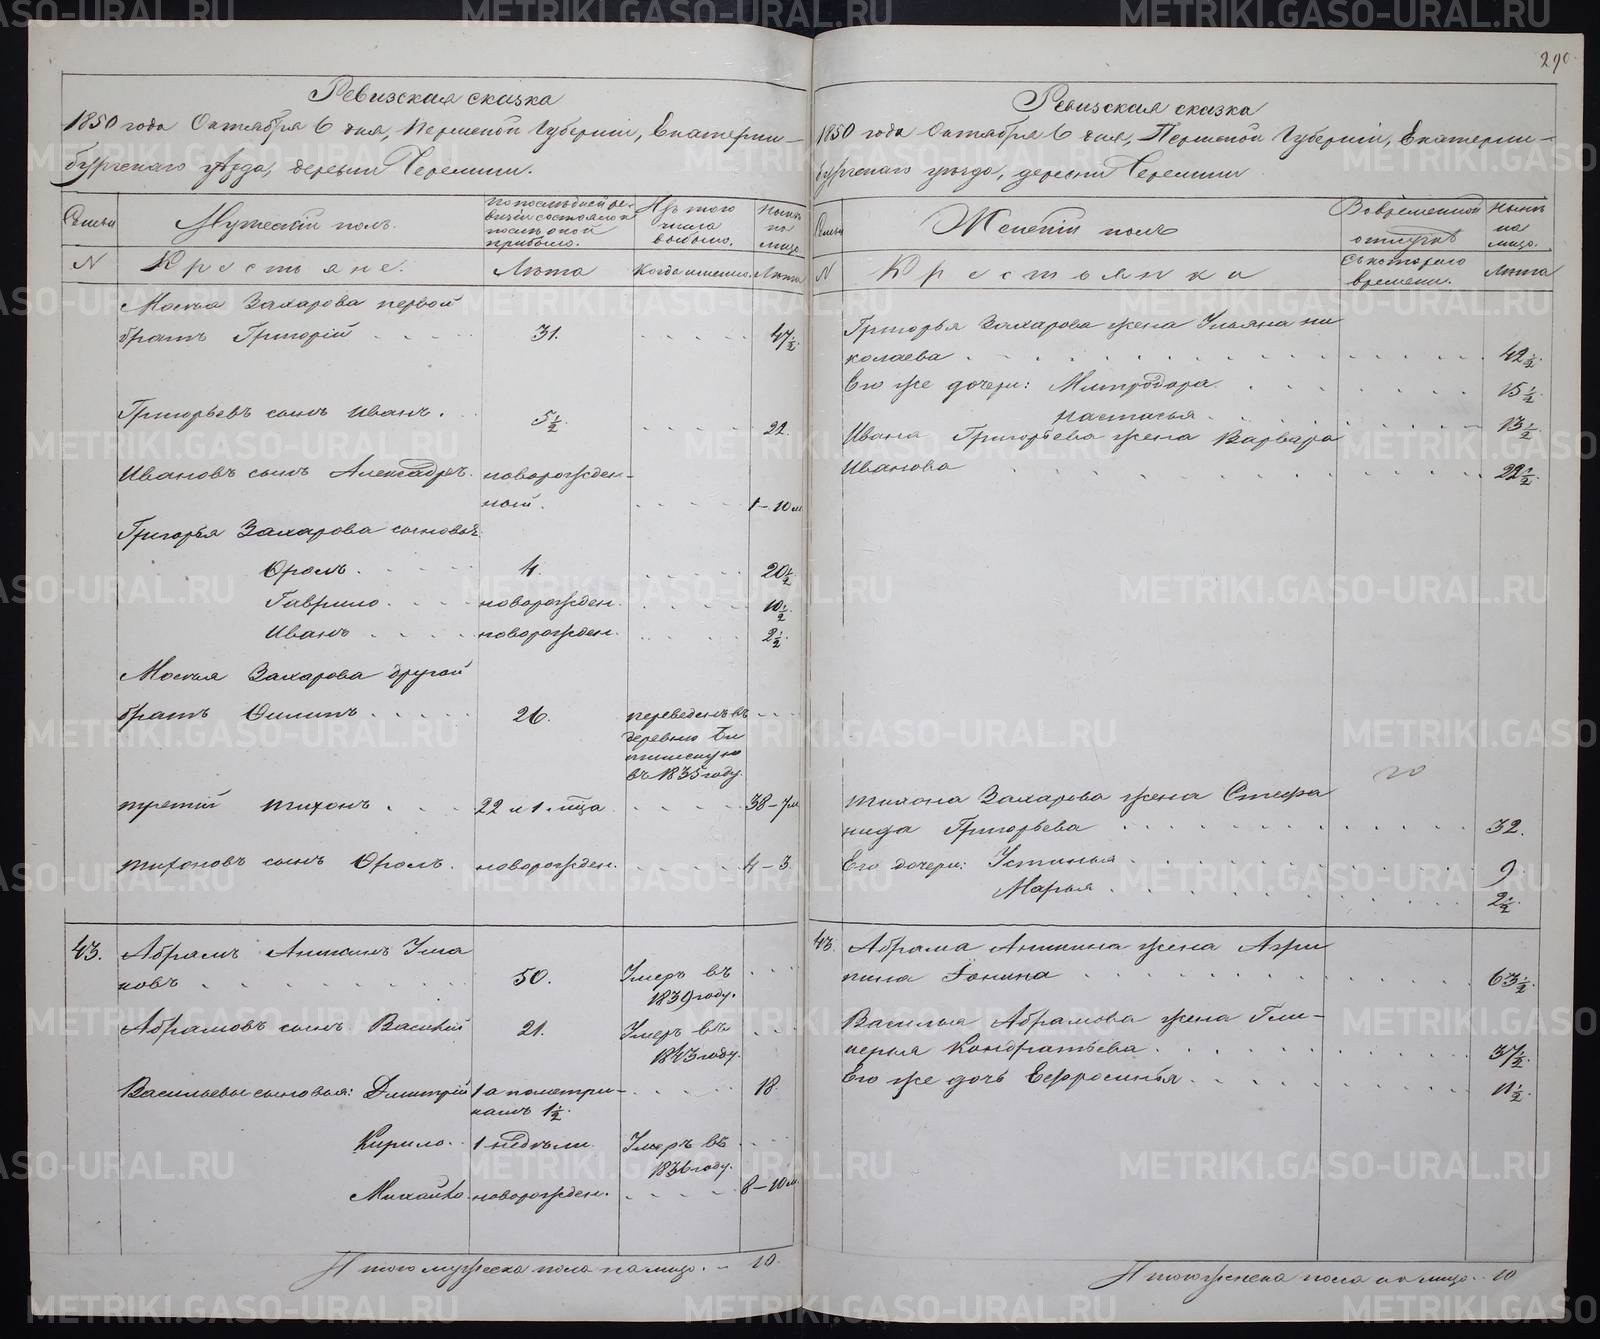 290.
Ревизская сказка
1850 года Октября 6 дня, Пермской Губернии, Екатерин-
бургскаго уѣзда, деревни Черемши.
Семьи
Мужескій полъ.
По последней ре-
визіи состояло и
послѣ оной
прибыло.
Изъ того
числа
выбыло.
Нынѣ
на
лицо.
N
Крестьяне.
Лѣта
Когда именно.
Лѣта
Захарова первой
братъ Григорій 31. 47 1/2.
Григорьевъ сынъ Иванъ. 5 1/2 22.
Ивановъ сынъ Александръ. новорожден-
ной. 1-10 м
Григорья Захарова сыновья:
Фролъ. 4. 20 1/2
Гаврило. новорожден. 10 1/2.
Иванъ новорожден. 2 1/2.
Захарова другой
братъ Филипъ 26. переведенъ въ
деревню
въ 1835 году.
третій Тихонъ. 22 и 1 мца 38-7 м
Тихоновъ сынъ Фролъ. новорожден. 4-3.
43. Абрамъ Аникинъ Уша
ковъ 50. Умеръ въ
1839 году.
Абрамовъ сынъ Василій 21. Умеръ въ
1843 году.
Васильевы сыновья: Дмитрій 1 а по метри-
камъ 1 1/2. 18.
Кирило. 1 недѣли. Умеръ въ
1836 году.
Михайло. новорожден. 8-10 м
Итого мужеска пола на лицо. - 10.
Ревизская сказка
1850 года Октября 6 дня, Пермской Губерніи, Екатерин-
бургскаго уѣзда, деревни Черемши
Семьи
Женскій полъ
Во временной
отлучкѣ
Нынѣ
на
лицо.
N
Крестьянки
Съ котораго
времени.
Лѣта
Григорья Захарова жена Ульяна Ни
колаева 42 1/2.
Его же дочери: Митродора 15 1/2.
Настасья. 13 1/2.
Ивана Григорьева жена Варвара
Иванова 22 1/2.
Тихона Захарова жена Стефа
нида Григорьева 32.
Его дочери: Устинья 9
Марья 2 1/2.
43. Абрама Аникина жена Агри
пина Фокина 63 1/2.
Василья Абрамова жена Гли-
керья Кондратьева. 37 1/2.
Его же дочь Ефросинья 11 1/2.
Итого женска пола на лицо. 10
METRIKI.GASO-URAL.RU